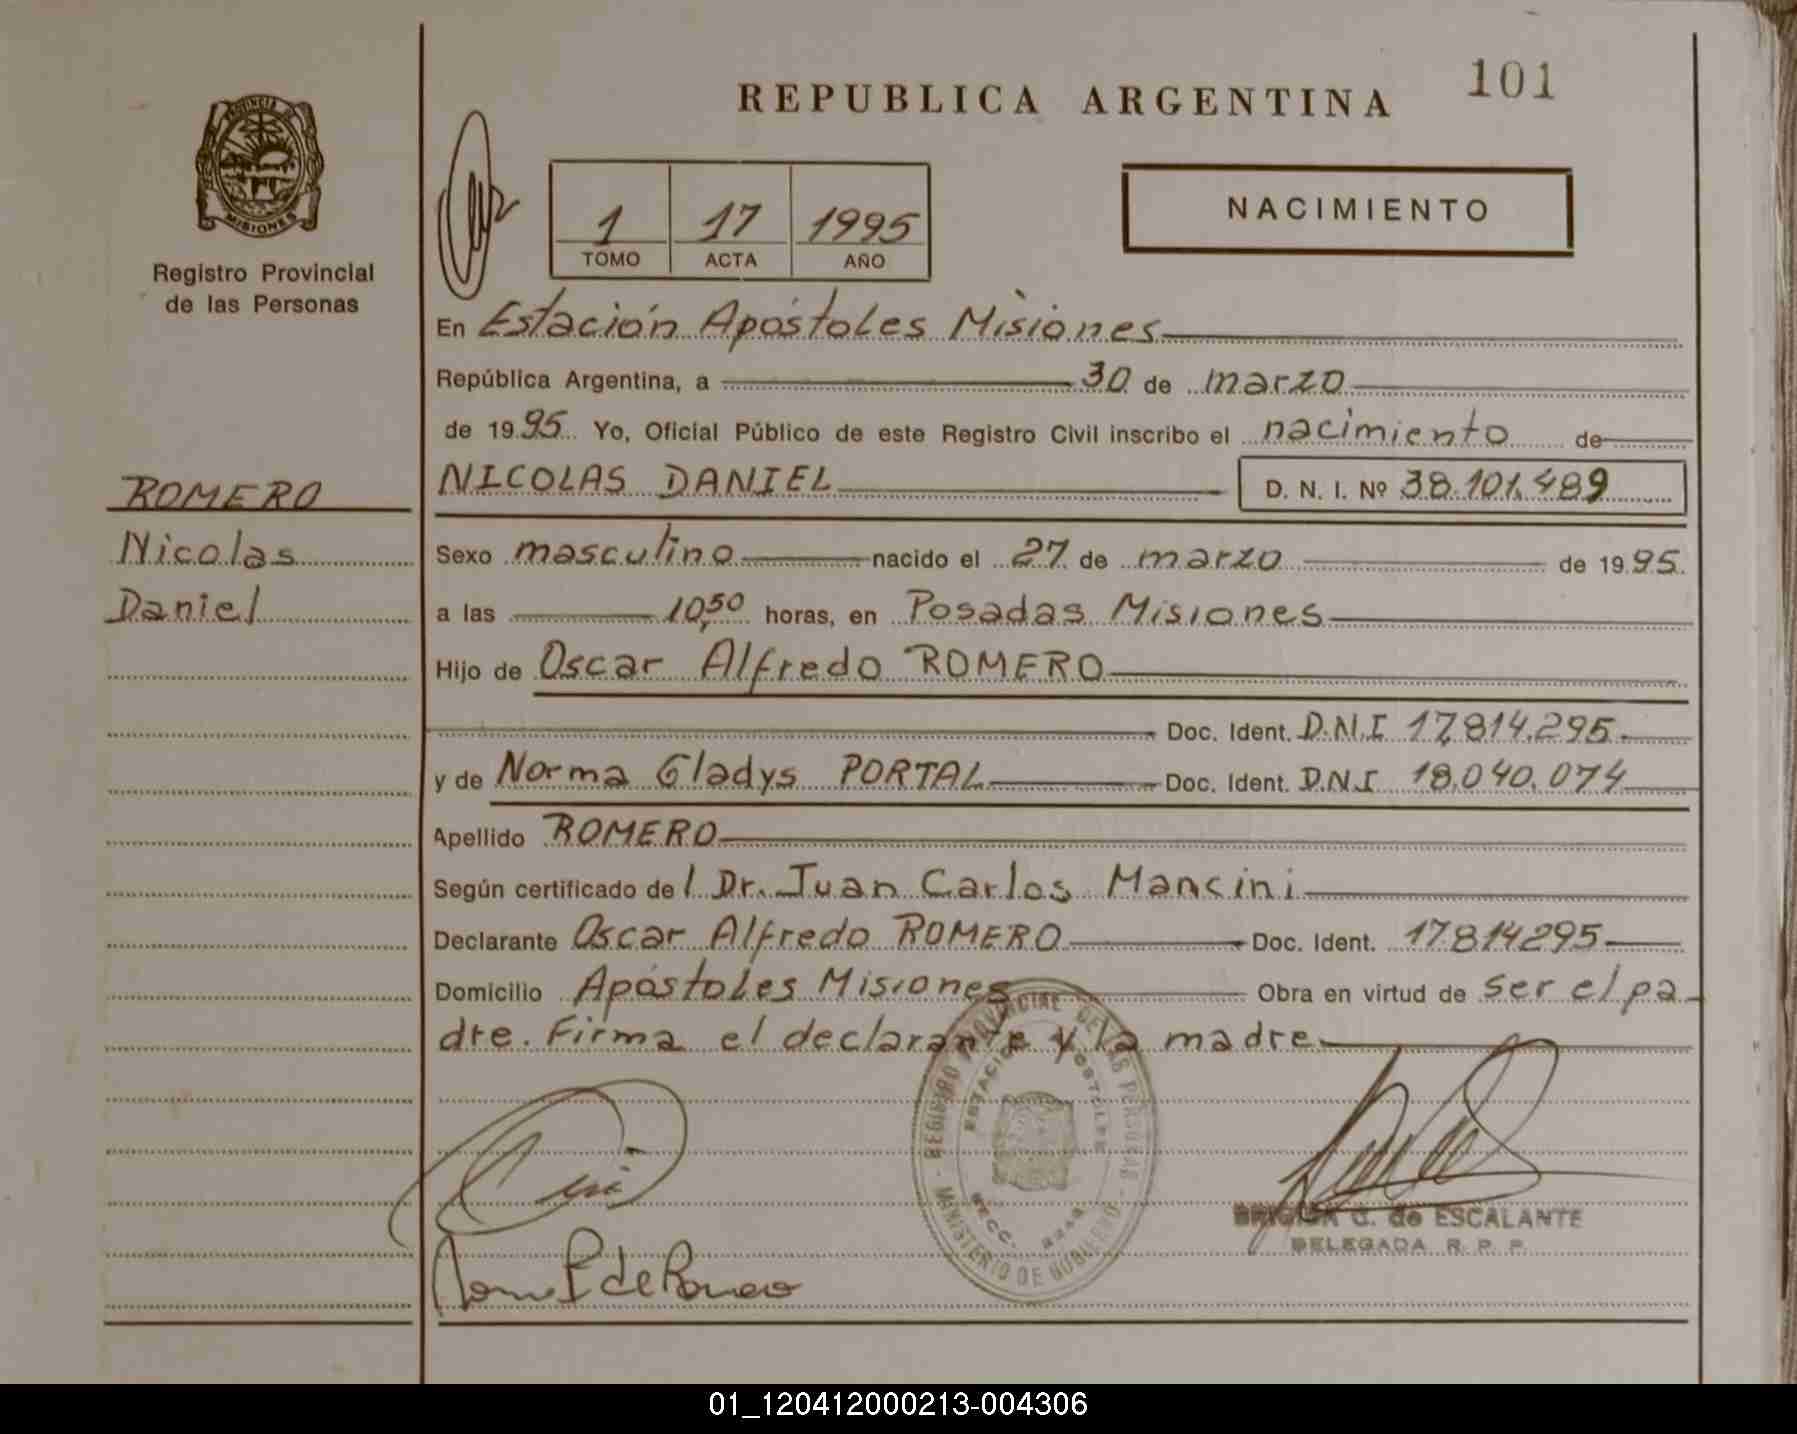 REPUBLICA ARGENTINA
101
PROVINCIA DE
MISIONES
Registro Provincial
de las Personas
1 17 1995
TOMO ACTA AÑO
NACIMIENTO
En Estación Apóstoles Misiones
República Argentina, a 30 de marzo
de 1995 Yo, Oficial Público de este Registro Civil inscribo el nacimiento de
NICOLAS DANIEL D. N. I. Nº 38.101.489
ROMERO
Nicolas
Daniel
Sexo masculino nacido el 27 de marzo de 1995.
a las 10,50 horas, en Posadas Misiones
Hijo de Oscar Alfredo ROMERO
Doc. Ident. D.N.I 17.814.295.
y de Norma Gladys PORTAL Doc. Ident. D.N.I 18.040.074
Apellido ROMERO
Según certificado del Dr. Juan Carlos Mancini
Declarante Oscar Alfredo ROMERO Doc. Ident. 17814295
Domicilio Apóstoles Misiones Obra en virtud de ser el pa-
dre. Firma el declarante y la madre
REGISTRO PROVINCIAL DE LAS PERSONAS - MINISTERIO DE GOBIERNO -
ESTACION APOSTOLES
SECC.
BRIGIDA G. de ESCALANTE
DELEGADA R. P. P.
01_120412000213-004306